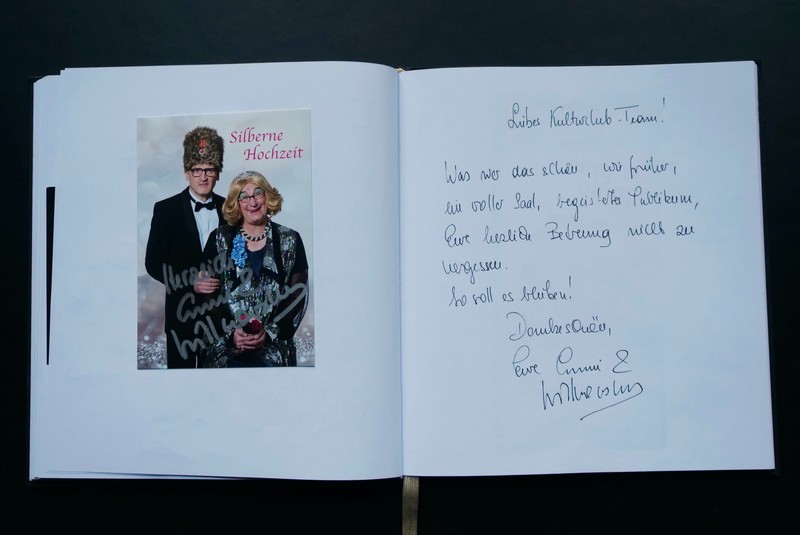 Silberne
Hochzeit
Liebes Kulturclub-Team!
Was war das schön, wie früher,
ein voller Saal, begeistertes Publikum,
Eure herzliche Betreuung nicht zu
vergessen.
So soll es bleiben!
Dankeschön,
Eure Emmi &
Willnowsky
Ihre
Emmi &
Willnowsky